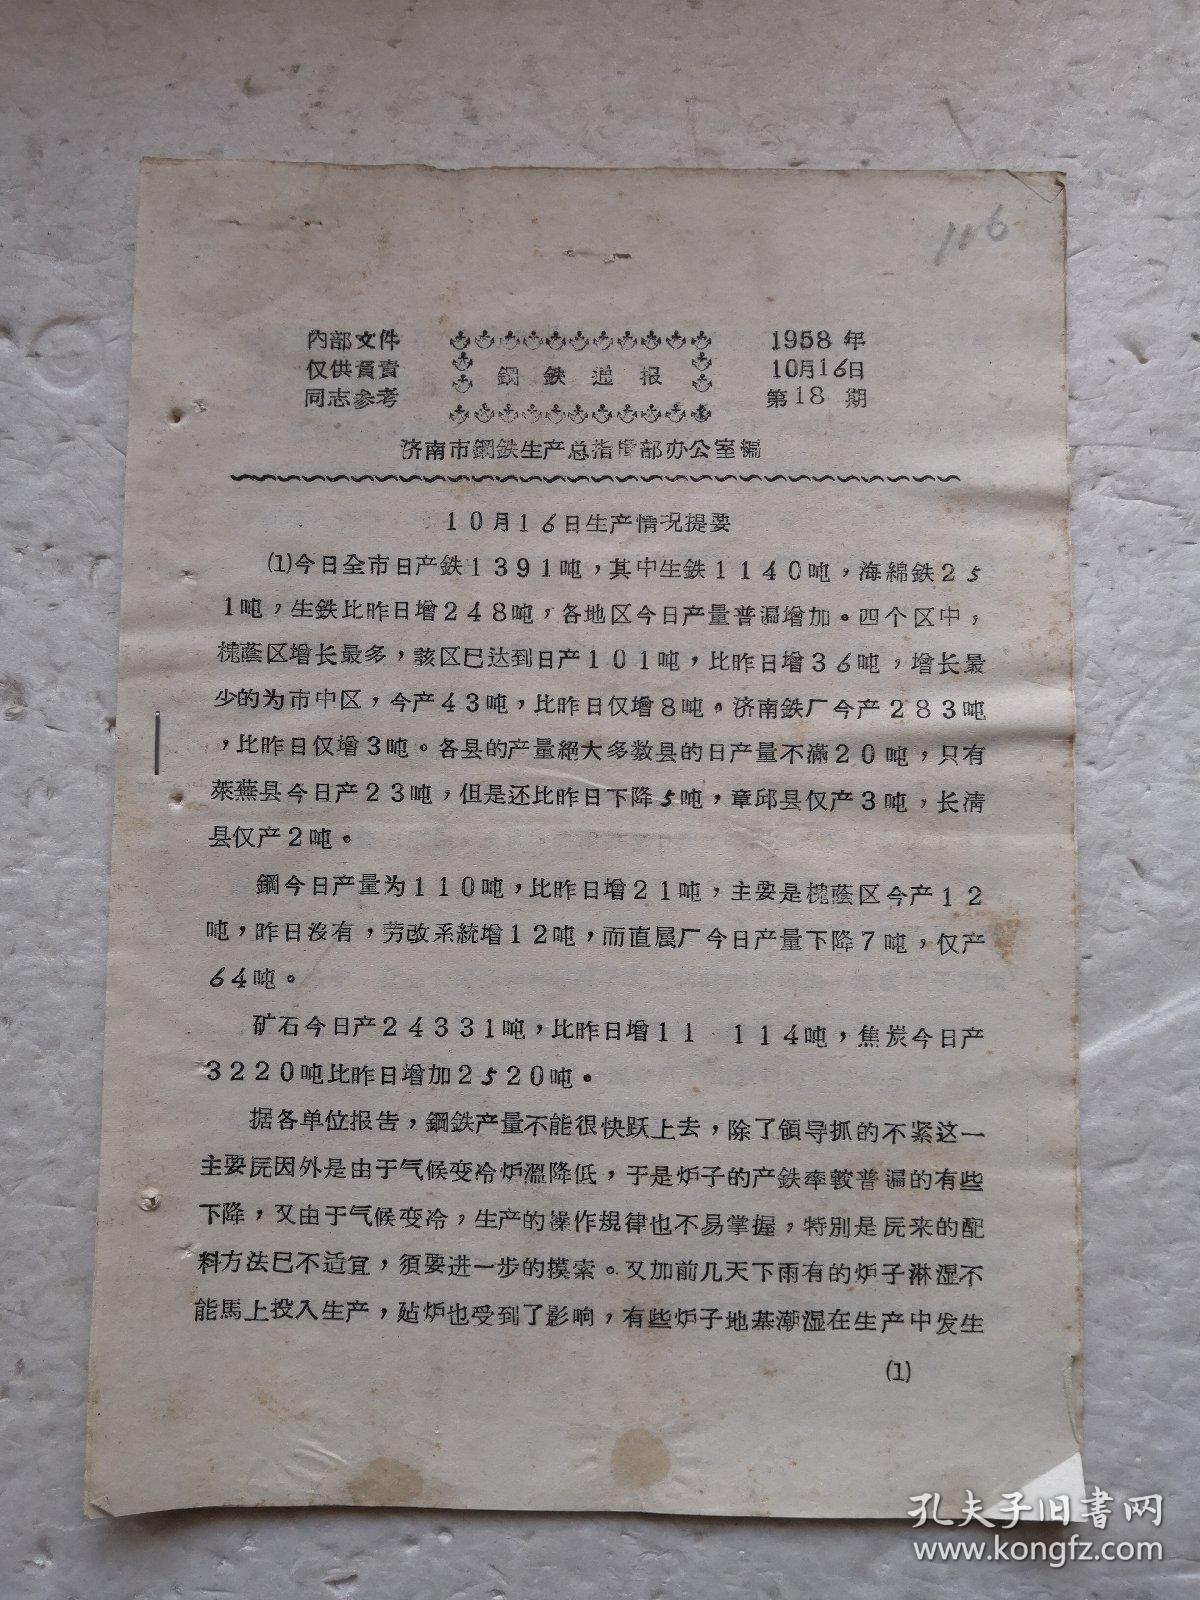 116
內部文件
仅供負責
同志参考
鋼鉄通报
1958年
10月16日
第18期
济南市鋼鉄生产总指揮部办公室編
10月16日生产情况提要
⑴今日全市日产鉄1391吨，其中生鉄1140吨，海綿鉄25
1吨，生鉄比昨日增248吨，各地区今日产量普遍增加。四个区中，
槐蔭区增长最多，該区已达到日产101吨，比昨日增36吨，增长最
少的为市中区，今产43吨，比昨日仅增8吨。济南鉄厂今产283吨
，比昨日仅增3吨。各县的产量絕大多数县的日产量不滿20吨，只有
萊蕪县今日产23吨，但是还比昨日下降5吨，章邱县仅产3吨，长清
县仅产2吨。
鋼今日产量为110吨，比昨日增21吨，主要是槐蔭区今产12
吨，昨日沒有，劳改系統增12吨，而直属厂今日产量下降7吨，仅产
64吨。
矿石今日产24331吨，比昨日增11 114吨，焦炭今日产
3220吨比昨日增加2520吨。
据各单位报告，鋼鉄产量不能很快跃上去，除了領导抓的不紧这一
主要原因外是由于气候变冷炉溫降低，于是炉子的产鉄率較普遍的有些
下降，又由于气候变冷，生产的操作規律也不易掌握，特別是原来的配
料方法已不适宜，須要进一步的摸索。又加前几天下雨有的炉子淋湿不
能馬上投入生产，建炉也受到了影响，有些炉子地基潮湿在生产中发生
⑴
孔夫子旧書网
www.kongfz.com